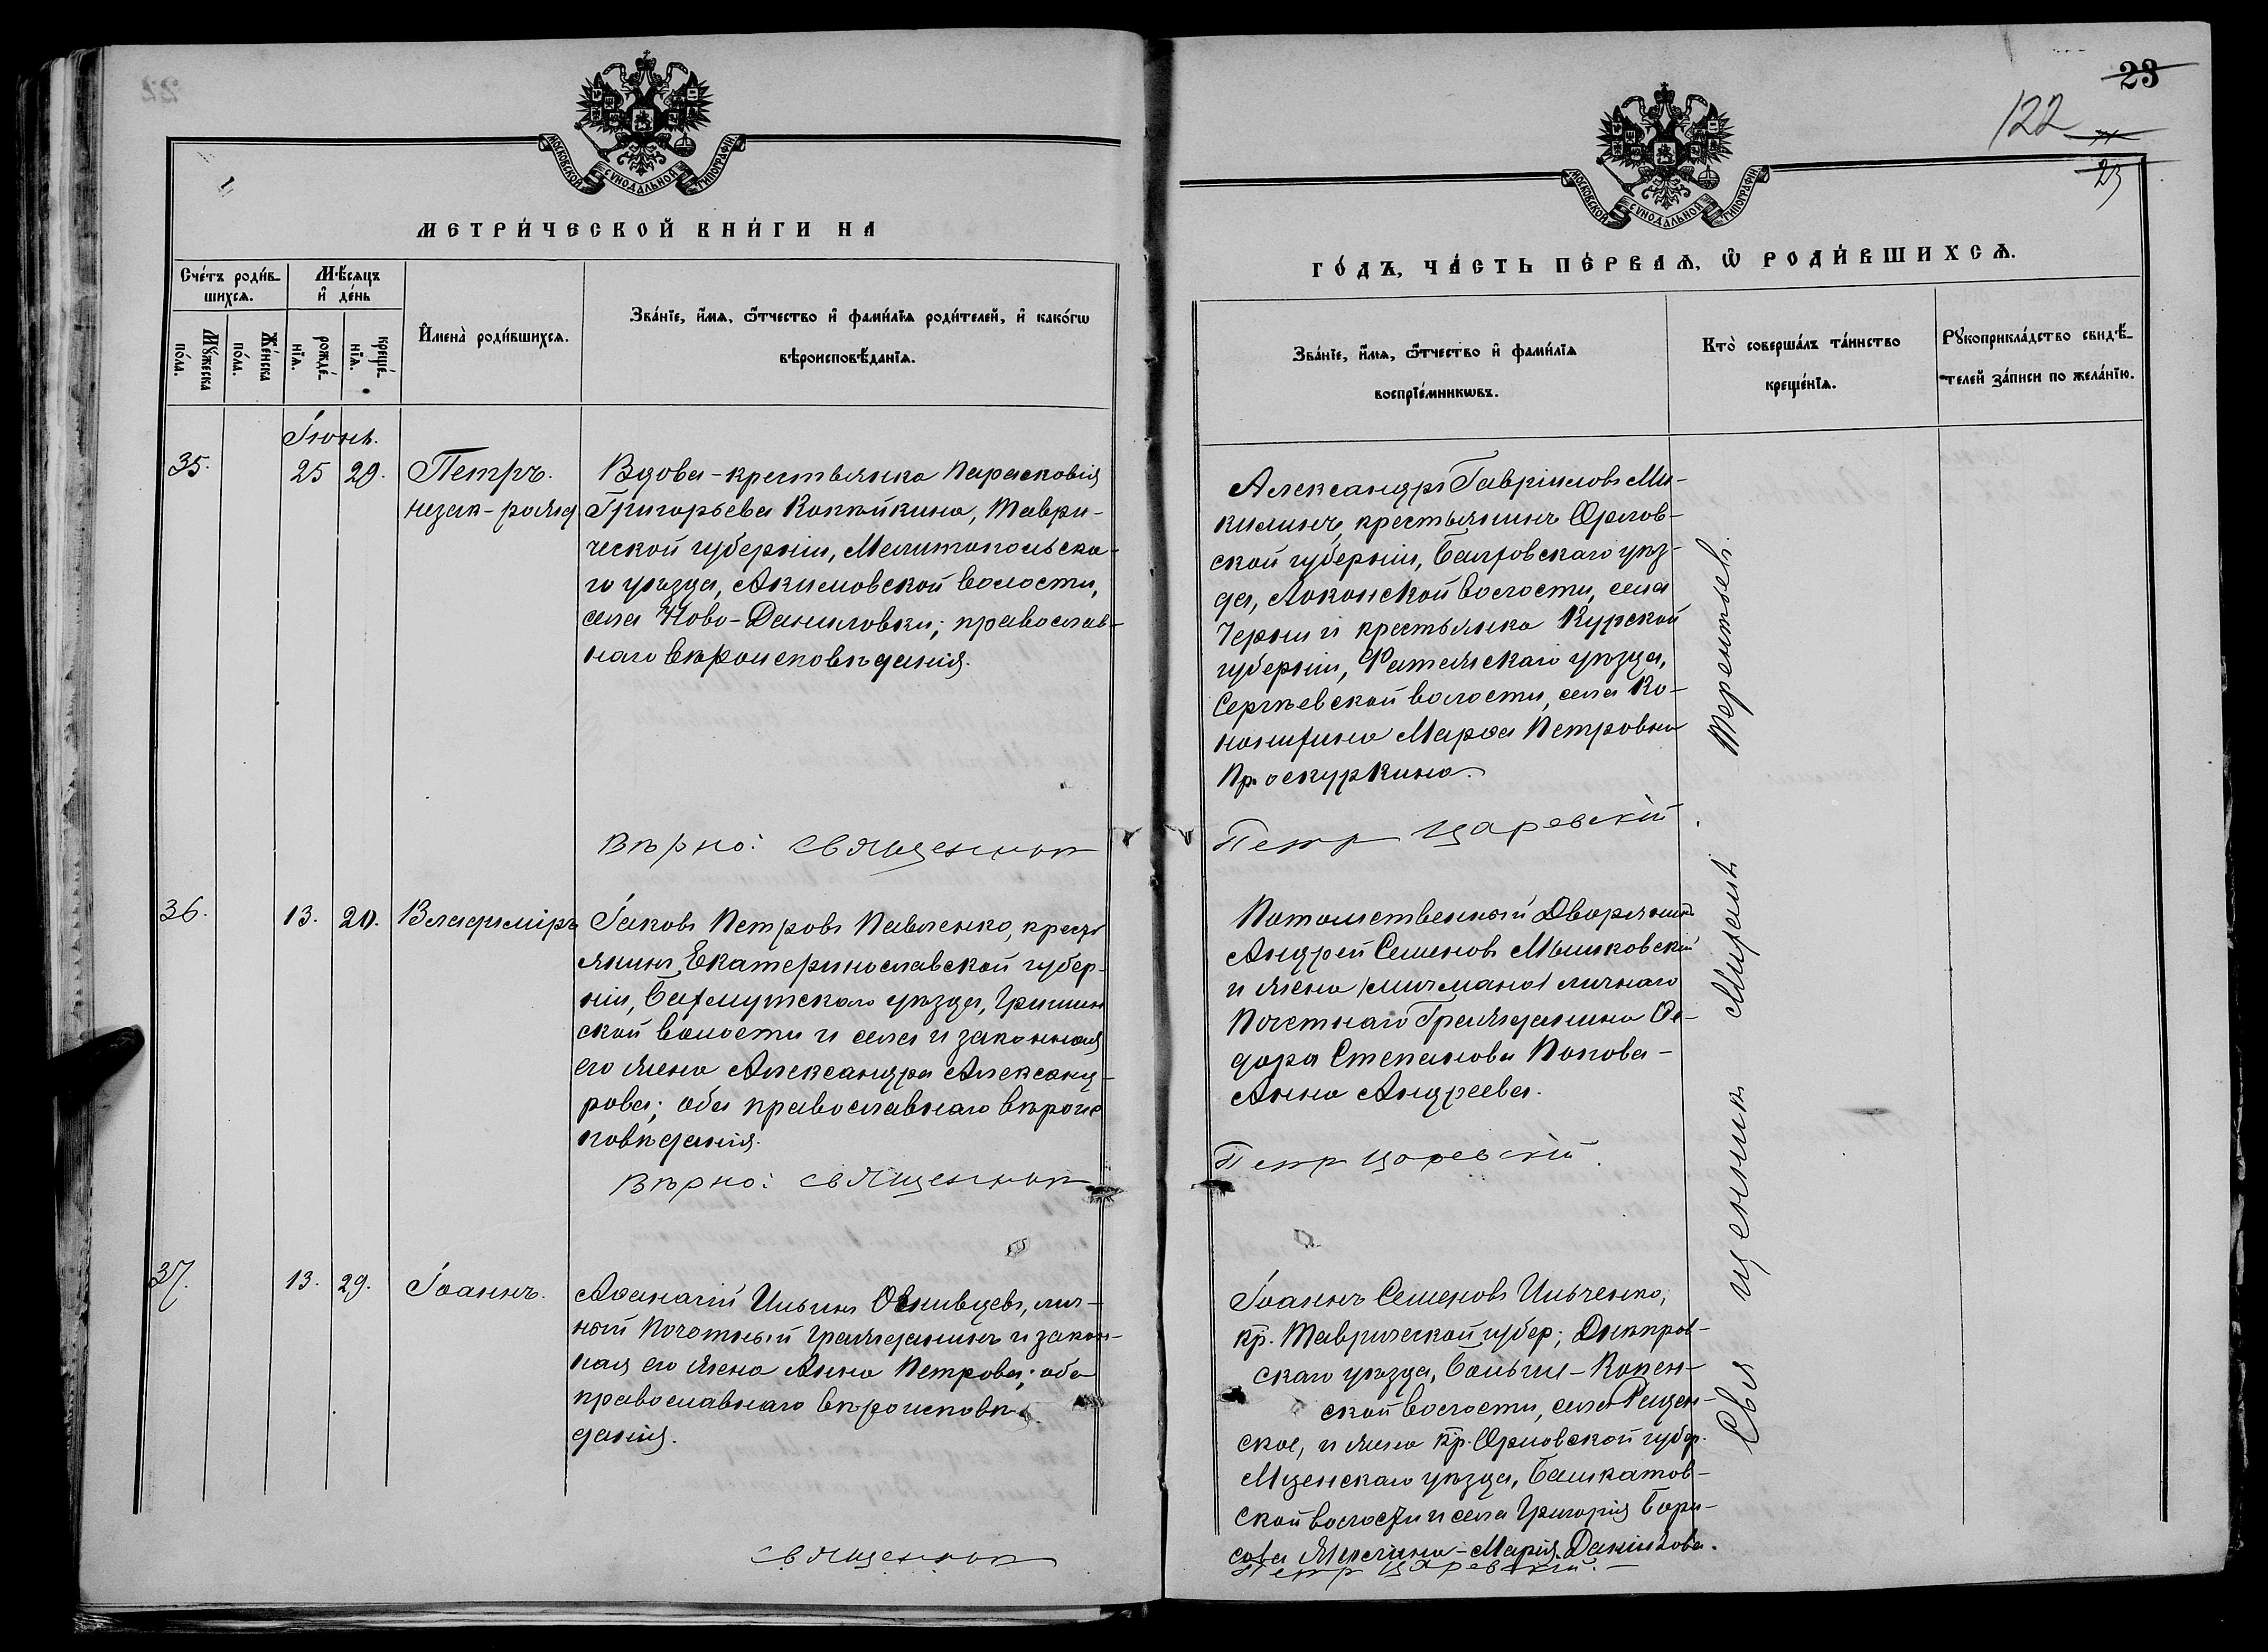 23
122
23
МОСКОВСКОЙ СѴНОДАЛЬНОЙ ТИПОГРАФІИ.
МЕТРИ́ЧЕСКОЙ КНИ́ГИ НА
Сче́тъ роди́в-
шихсѧ.
Мѣ́сяцъ
и҆ де́нь
Мꙋ́жеска
по́ла.
Же́нска
по́ла.
рожде́-
нїѧ.
креще́-
нїѧ.
И҆мена̀ роди́вшихсѧ.
Зва́нїе, и҆́мѧ, ѻ҆́тчество и҆ фами́лїѧ роди́телей, и҆ како́гѡ
вѣроисповѣ́данїѧ.
Іюнь.
35.
25
29.
Петръ.
незак-рожд
Вдова-крестьянка Парасковія
Григорьева Копѣйкина, Таври-
ческой губерніи, Мелитопольска-
го уѣзда, Акимовской волости,
села Ново-Даниловки; православ-
наго вѣроисповѣданія.
Вѣрно: священник
36.
13.
29.
Владиміръ
Іаковъ Петровъ Павленко, кресть
янинъ Екатеринославской губер-
ніи, Бахмутскаго уѣзда, Гришин
ской волости и села и законная
его жена Александра Александ-
рова; оба православнаго вѣроис
повѣданія.
Вѣрно: священник
37.
13.
29.
Іоаннъ.
Аѳанасій Ильинъ Овнивцевъ, лич-
ный почотный гражданинъ и закон-
ная его жена Анна Петрова; оба
православнаго вѣроисповѣ-
данія.
священник
МОСКОВСКОЙ СѴНОДАЛЬНОЙ ТИПОГРАФІИ.
ГО́ДЪ, ЧА́СТЬ ПЕ́РВАѦ, Ѡ҆ РОДИ́ВШИХСѦ.
Зва́нїе, и҆́мѧ, ѻ҆́тчество и҆ фами́лїѧ
воспрїе́мникѡвъ.
Кто̀ соверша́лъ та́инство
креще́нїѧ.
Рꙋкоприкла́дство свидѣ́-
телей за́писи по жела́нїю.
Александръ Гавріиловъ Ми-
килинъ, крестьянинъ Орлов-
ской губерніи, Балховскаго уѣз-
да, Локонской волости, села
Черни и крестьянка Курской
губерніи, Фатежскаго уѣзда,
Сергѣевской волости, села Ко-
нонихина Марѳа Петровна
Проскуркина.
Петр Царевскій.
Потомственный Дворянинъ
Андрей Семеновъ Мышковскій
и жена мичмана личнаго
Почетнаго Гражданина Ѳе-
дора Степанова Попова-
Анна Андреева.
Петр Царевскій.
Іоаннъ Семеновъ Ильченко,
кр. Таврической губер; Днѣпров-
скаго уѣзда, Больше-Копен-
ской волости, села
ское, и жена кр. Орловской губер.
Мценскаго уѣзда, Башкатов-
ской волости и села Григорія Бори-
сова -Марія Данилова.
Петр Царевскій.
Священникъ Михаилъ Терентьевъ.